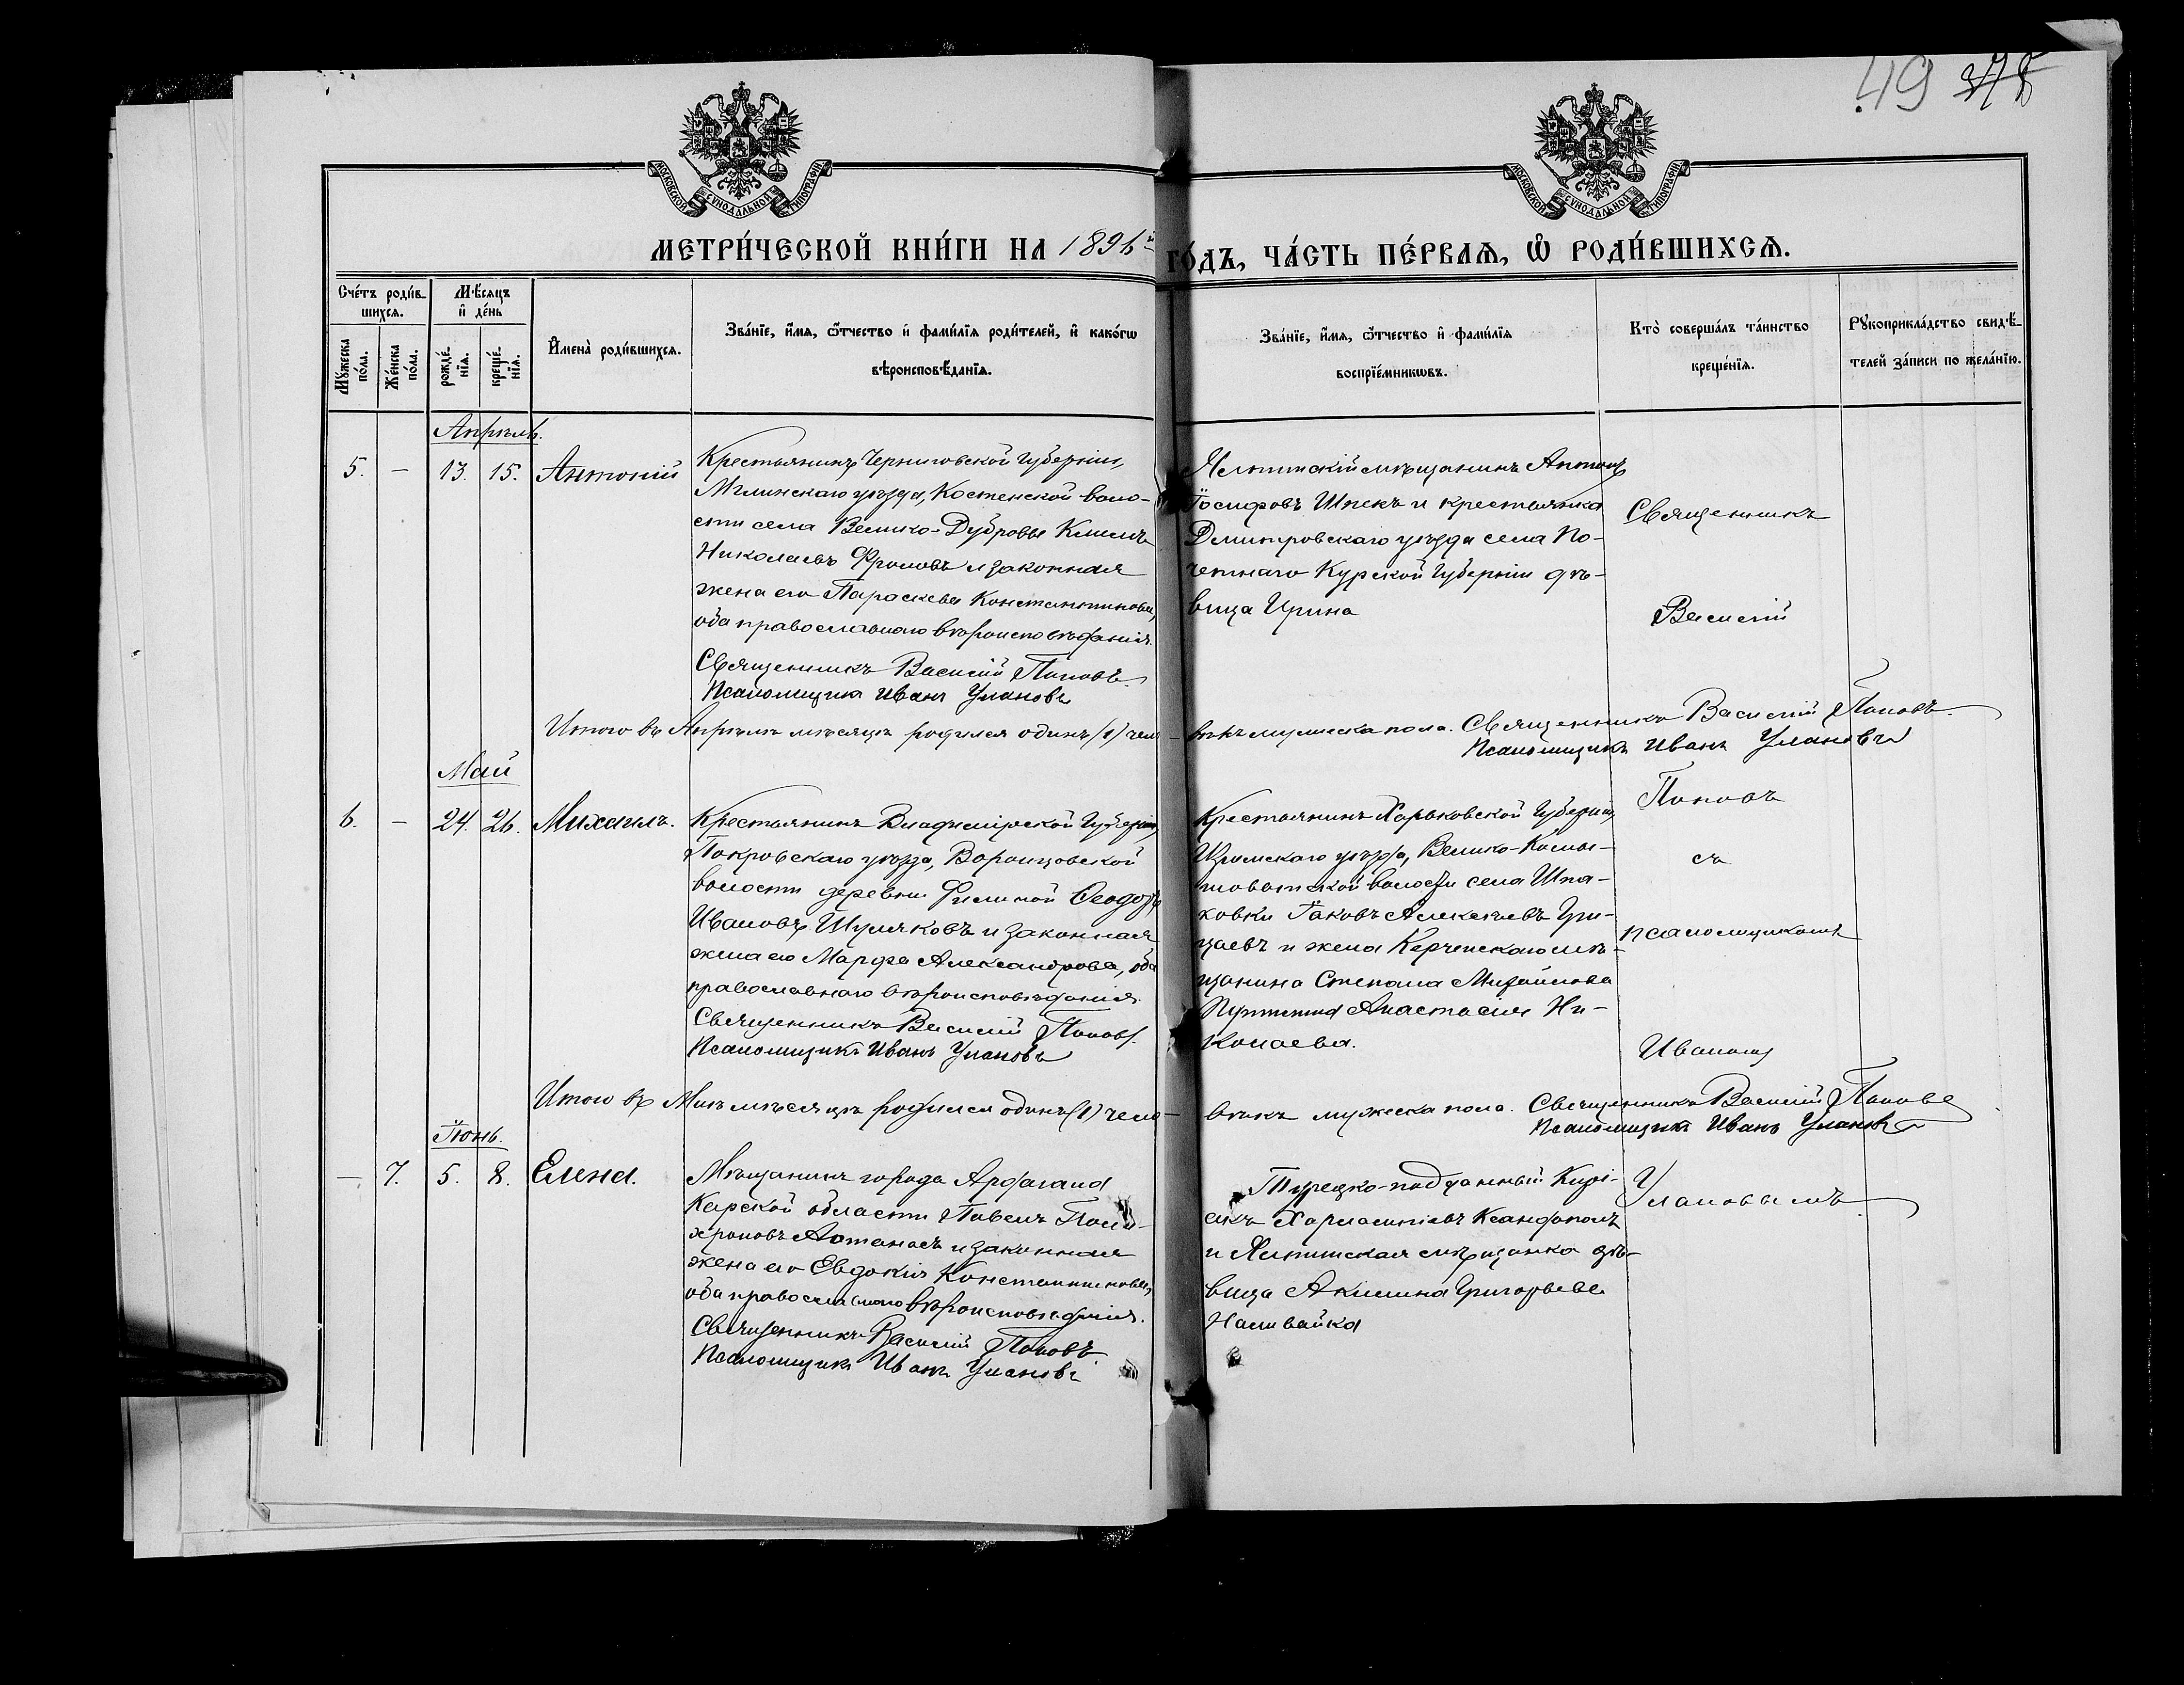 49
МОСКОВСКОЙ СУНОДАЛЬНОЙ ТИПОГРАФІИ
МОСКОВСКОЙ СУНОДАЛЬНОЙ ТИПОГРАФІИ
МЕТРИ́ЧЕСКОЙ КНИ́ГИ НА 1896й ГО́ДЪ, ЧА́СТЬ ПЕ́РВАѦ, Ѡ҆ РОДИ́ВШИХСѦ.
Сче́тъ роди́в-
шихсѧ.
Мꙋ́жеска по́ла.
Же́нска по́ла.
Мѣ́сяцъ
и҆ де́нь
рожде́-
нїѧ.
креще́-
нїѧ.
И҆мена̀ роди́вшихсѧ.
Зва́нїе, и҆́мѧ, ѻ҆́тчество и҆ фами́лїѧ роди́телей, и҆ како́гѡ
вѣроисповѣ́данїѧ.
Зва́нїе, и҆́мѧ, ѻ҆́тчество и҆ фами́лїѧ
воспрїе́мникѡвъ.
Кто̀ соверша́лъ та́инство
креще́нїѧ.
Рꙋкоприкла́дство свидѣ́-
телей за́писи по жела́нїю.
Апрѣль.
5. — 13. 15. Антоній
Крестьянинъ Черниговской губерніи,
Мглинскаго уѣзда, Костенской воло-
сти села Велико-Дубровы Климъ
Николаевъ Фроловъ и законная
жена его Параскева Константинова,
оба православнаго вѣроисповѣданія.
Священникъ Василій Поповъ.
Псаломщикъ Иванъ Улановъ
Ялтинскій мѣщанинъ Антонъ
Іосифовъ Шпекъ и крестьянка
Дмитровскаго уѣзда села По-
четнаго Курской губерніи дѣ-
вица Ирина
Священникъ
Василій
Итого въ Апрѣлѣ мѣсяцѣ родился одинъ (1) чело-
вѣкъ мужеска пола. Священникъ Василій Поповъ.
Псаломщикъ Иванъ Улановъ
Май
6. — 24. 26. Михаилъ.
Крестьянинъ Владимірской губерніи,
Покровскаго уѣзда, Воронцовской
волости деревни Филиной Ѳеодоръ
Ивановъ Шуляковъ и законная
жена его Марфа Александрова, оба
православнаго вѣроисповѣданія.
Священникъ Василій Поповъ.
Псаломщикъ Иванъ Улановъ
Крестьянинъ Харьковской губерніи,
Изюмскаго уѣзда, Велико-Камы-
шовотской волости села Шпа-
ковки Іаковъ Алексѣевъ Гри-
цаевъ и жена Керченскаго мѣ-
щанина Степана Михайлова
Анастасія Ни-
колаева.
Поповъ
съ
псаломщикомъ
Иваномъ
Итого въ Маѣ мѣсяцѣ родился одинъ (1) чело-
вѣкъ мужеска пола. Священникъ Василій Поповъ
Псаломщикъ Иванъ Улановъ
Іюнь.
— 7. 5. 8. Елена.
Мѣщанинъ города Ардагана
Карской области Павелъ Поли-
хроновъ и законная
жена его Евдокія Константинова,
оба православнаго вѣроисповѣданія.
Священникъ Василій Поповъ.
Псаломщикъ Иванъ Улановъ
Турецко-подданный Кирі-
акъ Харлампіевъ Ксандополъ
и Ялтинская мѣщанка дѣ-
вица Акилина Григорьева
Наливайка
Улановымъ.